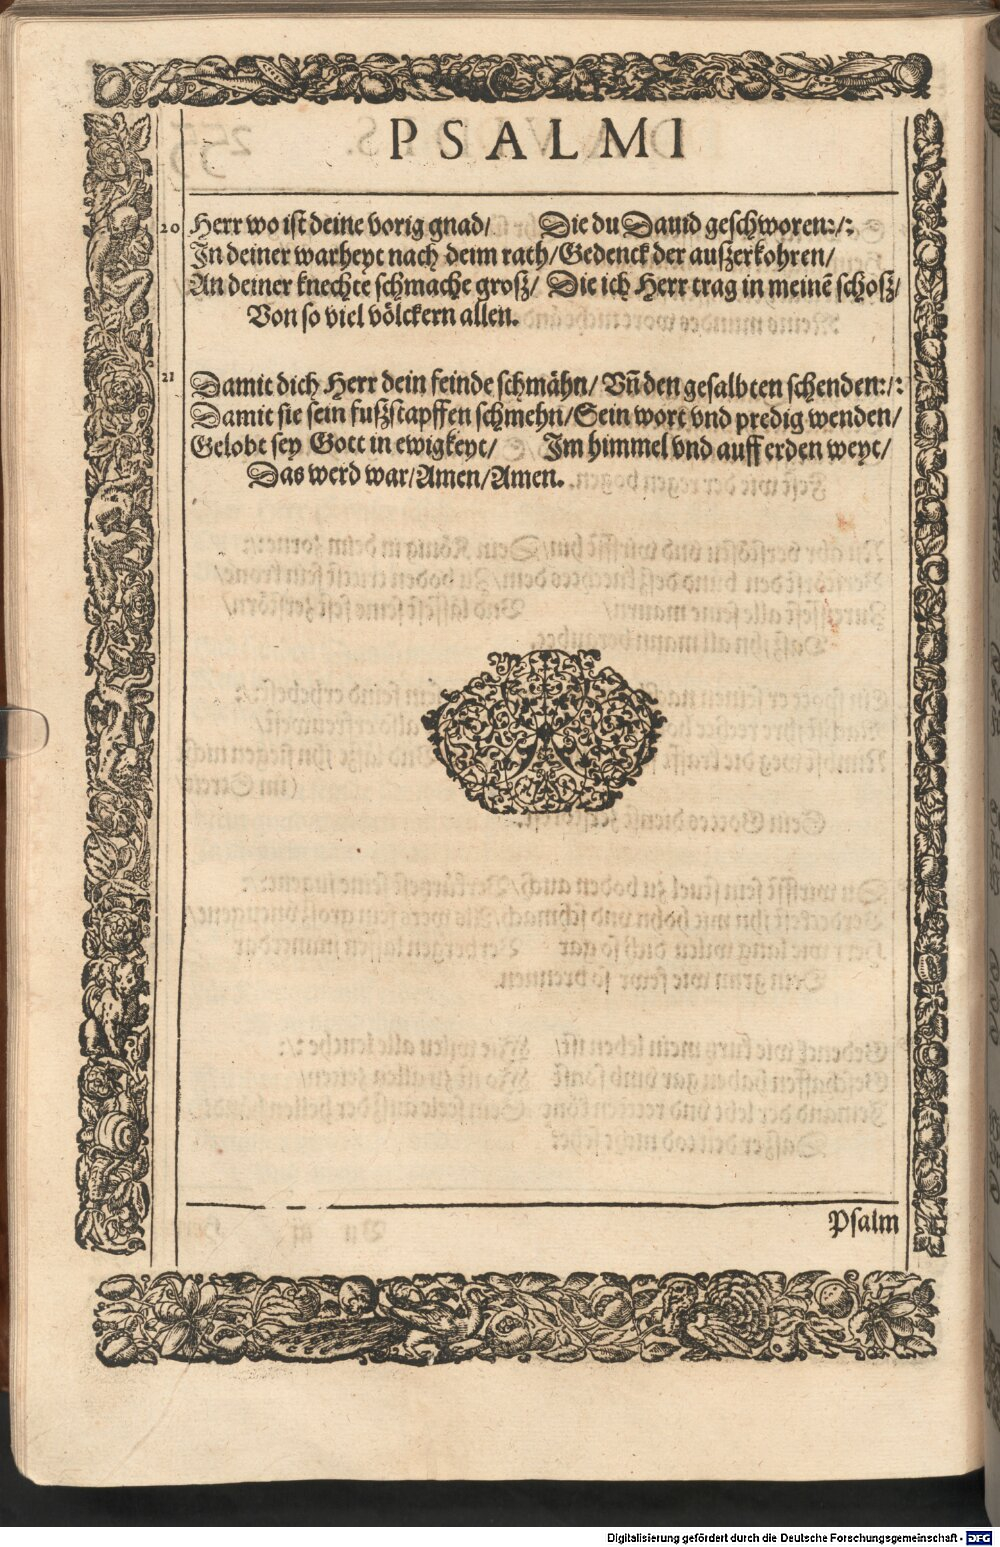 PSALMI
20 Herr wo ist deine vorig gnad/ Die du Dauid geschworen:/:
In deiner warheyt nach deim rath/Gedenck der außerkohren/
An deiner knechte schmache groß/ Die ich Herr trag in meinē schoß/
Von so viel völckern allen.
21 Damit dich Herr dein feinde schmähn/ Vñ den gesalbten schenden:/:
Damit sie sein fußstapffen schmehn/Sein wort vnd predig wenden/
Gelobt sey Gott in ewigkeyt/ Im himmel vnd auff erden weyt/
Das werd war/Amen/Amen.
Psalm
Digitalisierung gefördert durch die Deutsche Forschungsgemeinschaft - DFG